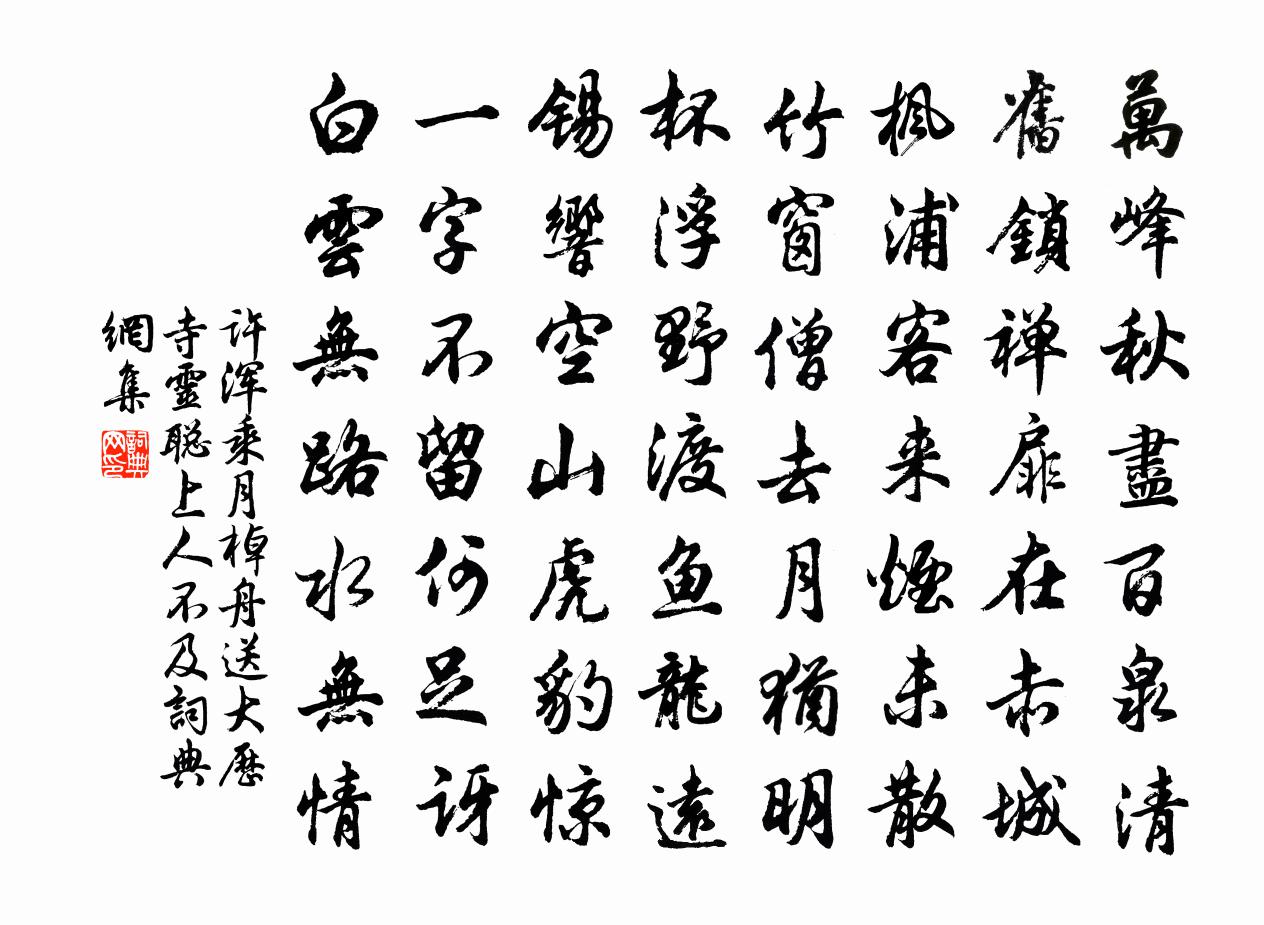 萬峰秋盡百泉清
舊鎖禅扉在赤城
楓浦客来煙未散
竹窗僧去月猶明
杯浮野渡魚龍遠
錫響空山虎豹惊
一字不留何足訝
白雲無路水無情
許渾乘月棹舟送大歷
寺靈聡上人不及詞典
網集
詞典网印